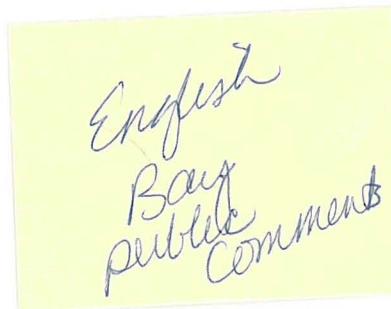 English
Bay
public
comments